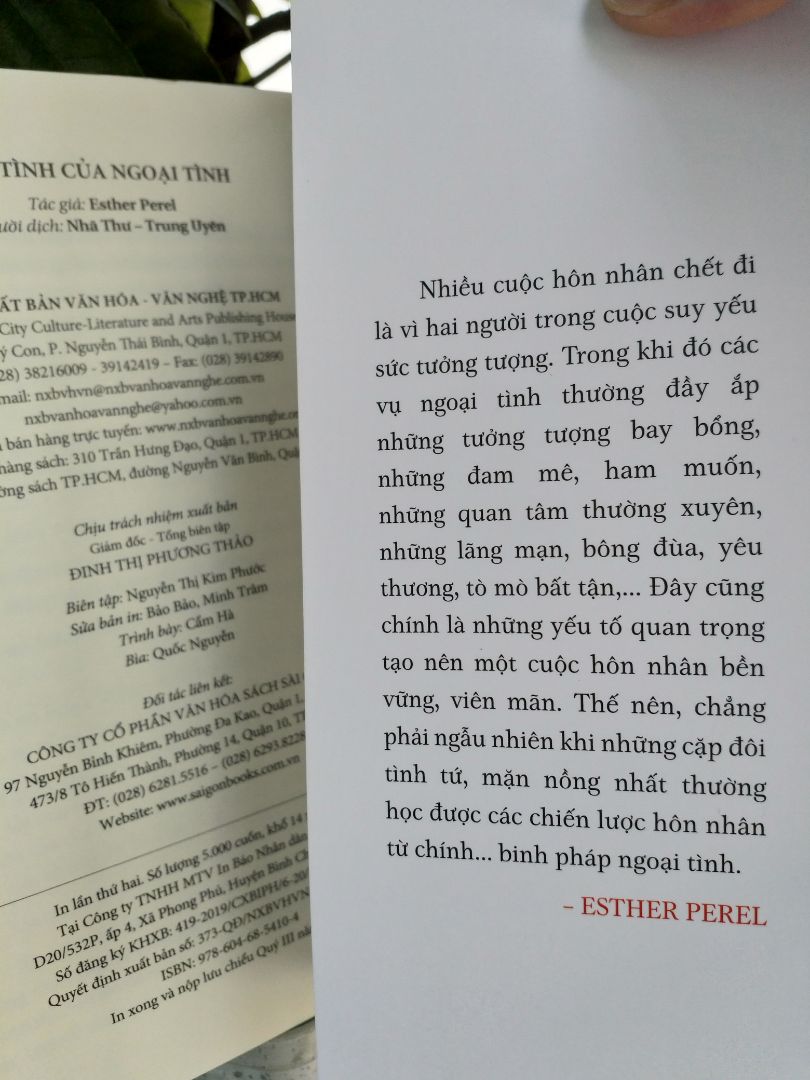 TÌNH CỦA NGOẠI TÌNH
Tác giả: Esther Perel
dịch: Nhã Thư – Trung Uyên
BẢN VĂN HÓA - VĂN NGHỆ TP.HCM
City Culture-Literature and Arts Publishing House
Con, P. Nguyễn Thái Bình, Quận 1, TP.HCM
38216009 - 39142419 – Fax: (028) 39142890
nxbvhvn@nxbvanhoavannghe.com.vn
nxbvanhoavannghe@yahoo.com.vn
bán hàng trực tuyến: www.nxbvanhoavannghe.
sách: 310 Trần Hưng Đạo, Quận 1, TP.HCM
sách TP.HCM, đường Nguyễn Văn Bình,
Chịu trách nhiệm xuất bản
Giám đốc - Tổng biên tập
ĐINH THỊ PHƯƠNG THẢO
Biên tập: Nguyễn Thị Kim Phước
Sửa bản in: Bảo Bảo, Minh Trâm
Trình bày: Cẩm Hà
Bìa: Quốc Nguyễn
Đối tác liên kết:
CÔNG TY CỔ PHẦN VĂN HÓA SÁCH SÀI
97 Nguyễn Bỉnh Khiêm, Phường Đa Kao, Quận 1,
473/8 Tô Hiến Thành, Phường 14, Quận 10,
ĐT: (028) 6281.5516 – (028) 6293.8228
Website: www.saigonbooks.com.vn
In lần thứ hai. Số lượng 5.000 cuốn, khổ 14
Tại Công ty TNHH MTV In Báo Nhân dân
D20/532P, ấp 4, Xã Phong Phú, Huyện Bình
Số đăng ký KHXB: 419-2019/CXBIPH/6-20/
Quyết định xuất bản số: 373-QĐ/NXBVHVN
ISBN: 978-604-68-5410-4
In xong và nộp lưu chiểu Quý III
Nhiều cuộc hôn nhân chết đi
là vì hai người trong cuộc suy yếu
sức tưởng tượng. Trong khi đó các
vụ ngoại tình thường đầy ắp
những tưởng tượng bay bổng,
những đam mê, ham muốn,
những quan tâm thường xuyên,
những lãng mạn, bông đùa, yêu
thương, tò mò bất tận,... Đây cũng
chính là những yếu tố quan trọng
tạo nên một cuộc hôn nhân bền
vững, viên mãn. Thế nên, chẳng
phải ngẫu nhiên khi những cặp đôi
tình tứ, mặn nồng nhất thường
học được các chiến lược hôn nhân
từ chính... binh pháp ngoại tình.
– ESTHER PEREL